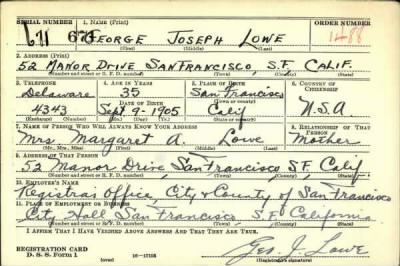 SERIAL NUMBER 1. NAME (Print) ORDER NUMBER
GEORGE JOSEPH LOWE 1488
(First) (Middle) (Last)
2. ADDRESS (Print)
52 MANOR DRIVE SAN FRANCISCO, S.F. CALIF.
(Number and street or R. F. D. number) (Town) (County) (State)
3. TELEPHONE 4. AGE IN YEARS 5. PLACE OF BIRTH 6. COUNTRY OF CITIZENSHIP
Delaware 35 San Francisco
DATE OF BIRTH (Town or county)
4343 Sept-9-1905 Calif U.S.A
(Exchange) (Number) (Mo.) (Day) (Yr.) (State or country)
7. NAME OF PERSON WHO WILL ALWAYS KNOW YOUR ADDRESS 8. RELATIONSHIP OF THAT PERSON
Mrs Margaret A. Lowe Mother
(Mr., Mrs., Miss) (First) (Middle) (Last)
9. ADDRESS OF THAT PERSON
52 Manor Drive San Francisco S.F. Calif
(Number and street or R. F. D. number) (Town) (County) (State)
10. EMPLOYER'S NAME
Registrars Office, City & County of San Francisco
11. PLACE OF EMPLOYMENT OR BUSINESS
City Hall San Francisco S.F. California
(Number and street or R. F. D. number) (Town) (County) (State)
I AFFIRM THAT I HAVE VERIFIED ABOVE ANSWERS AND THAT THEY ARE TRUE.
REGISTRATION CARD
D. S. S. Form 1 (over) 16-17105 Geo. J. Lowe
(Registrant's signature)